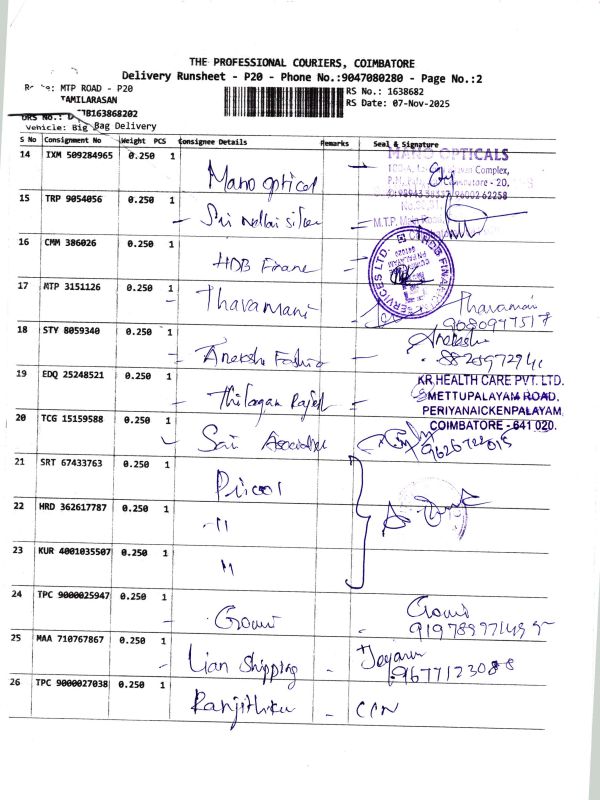 THE PROFESSIONAL COURIERS, COIMBATORE
Delivery Runsheet - P20 - Phone No.:9047080280 - Page No.:2
MTP ROAD - P20
TAMILARASAN
RS No.: 1638682
RS Date: 07-Nov-2025
DRS No.: 163868202
Vehicle: Big Bag Delivery
S No Consignment No Weight PCS Consignee Details Remarks Seal & Signature
14 IXM 509284965 0.250 1 Mano optical MANO OPTICALS
Complex,
Coimbatore - 20.
15 TRP 9054056 0.250 1 Sri Nellai silver
M.T.P. Main Road
16 CMM 386026 0.250 1 HDB Finane HDB FINANCIAL SERVICES LTD.
17 MTP 3151126 0.250 1 Thavamani Thavamani
18 STY 8059340 0.250 1 Fashio
19 EDQ 25248521 0.250 1 Thilagan KR HEALTH CARE PVT. LTD.
METTUPALAYAM ROAD,
PERIYANAICKENPALAYAM,
COIMBATORE - 641 020.
20 TCG 15159588 0.250 1 Sai
21 SRT 67433763 0.250 1 Pricol
22 HRD 362617787 0.250 1 -11
23 KUR 4001035507 0.250 1 11
24 TPC 9000025947 0.250 1 Gomi Gomi
25 MAA 710767867 0.250 1 Lian Shipping - Jeyaram
9677123088
26 TPC 9000027038 0.250 1 Ranjithku - CCN